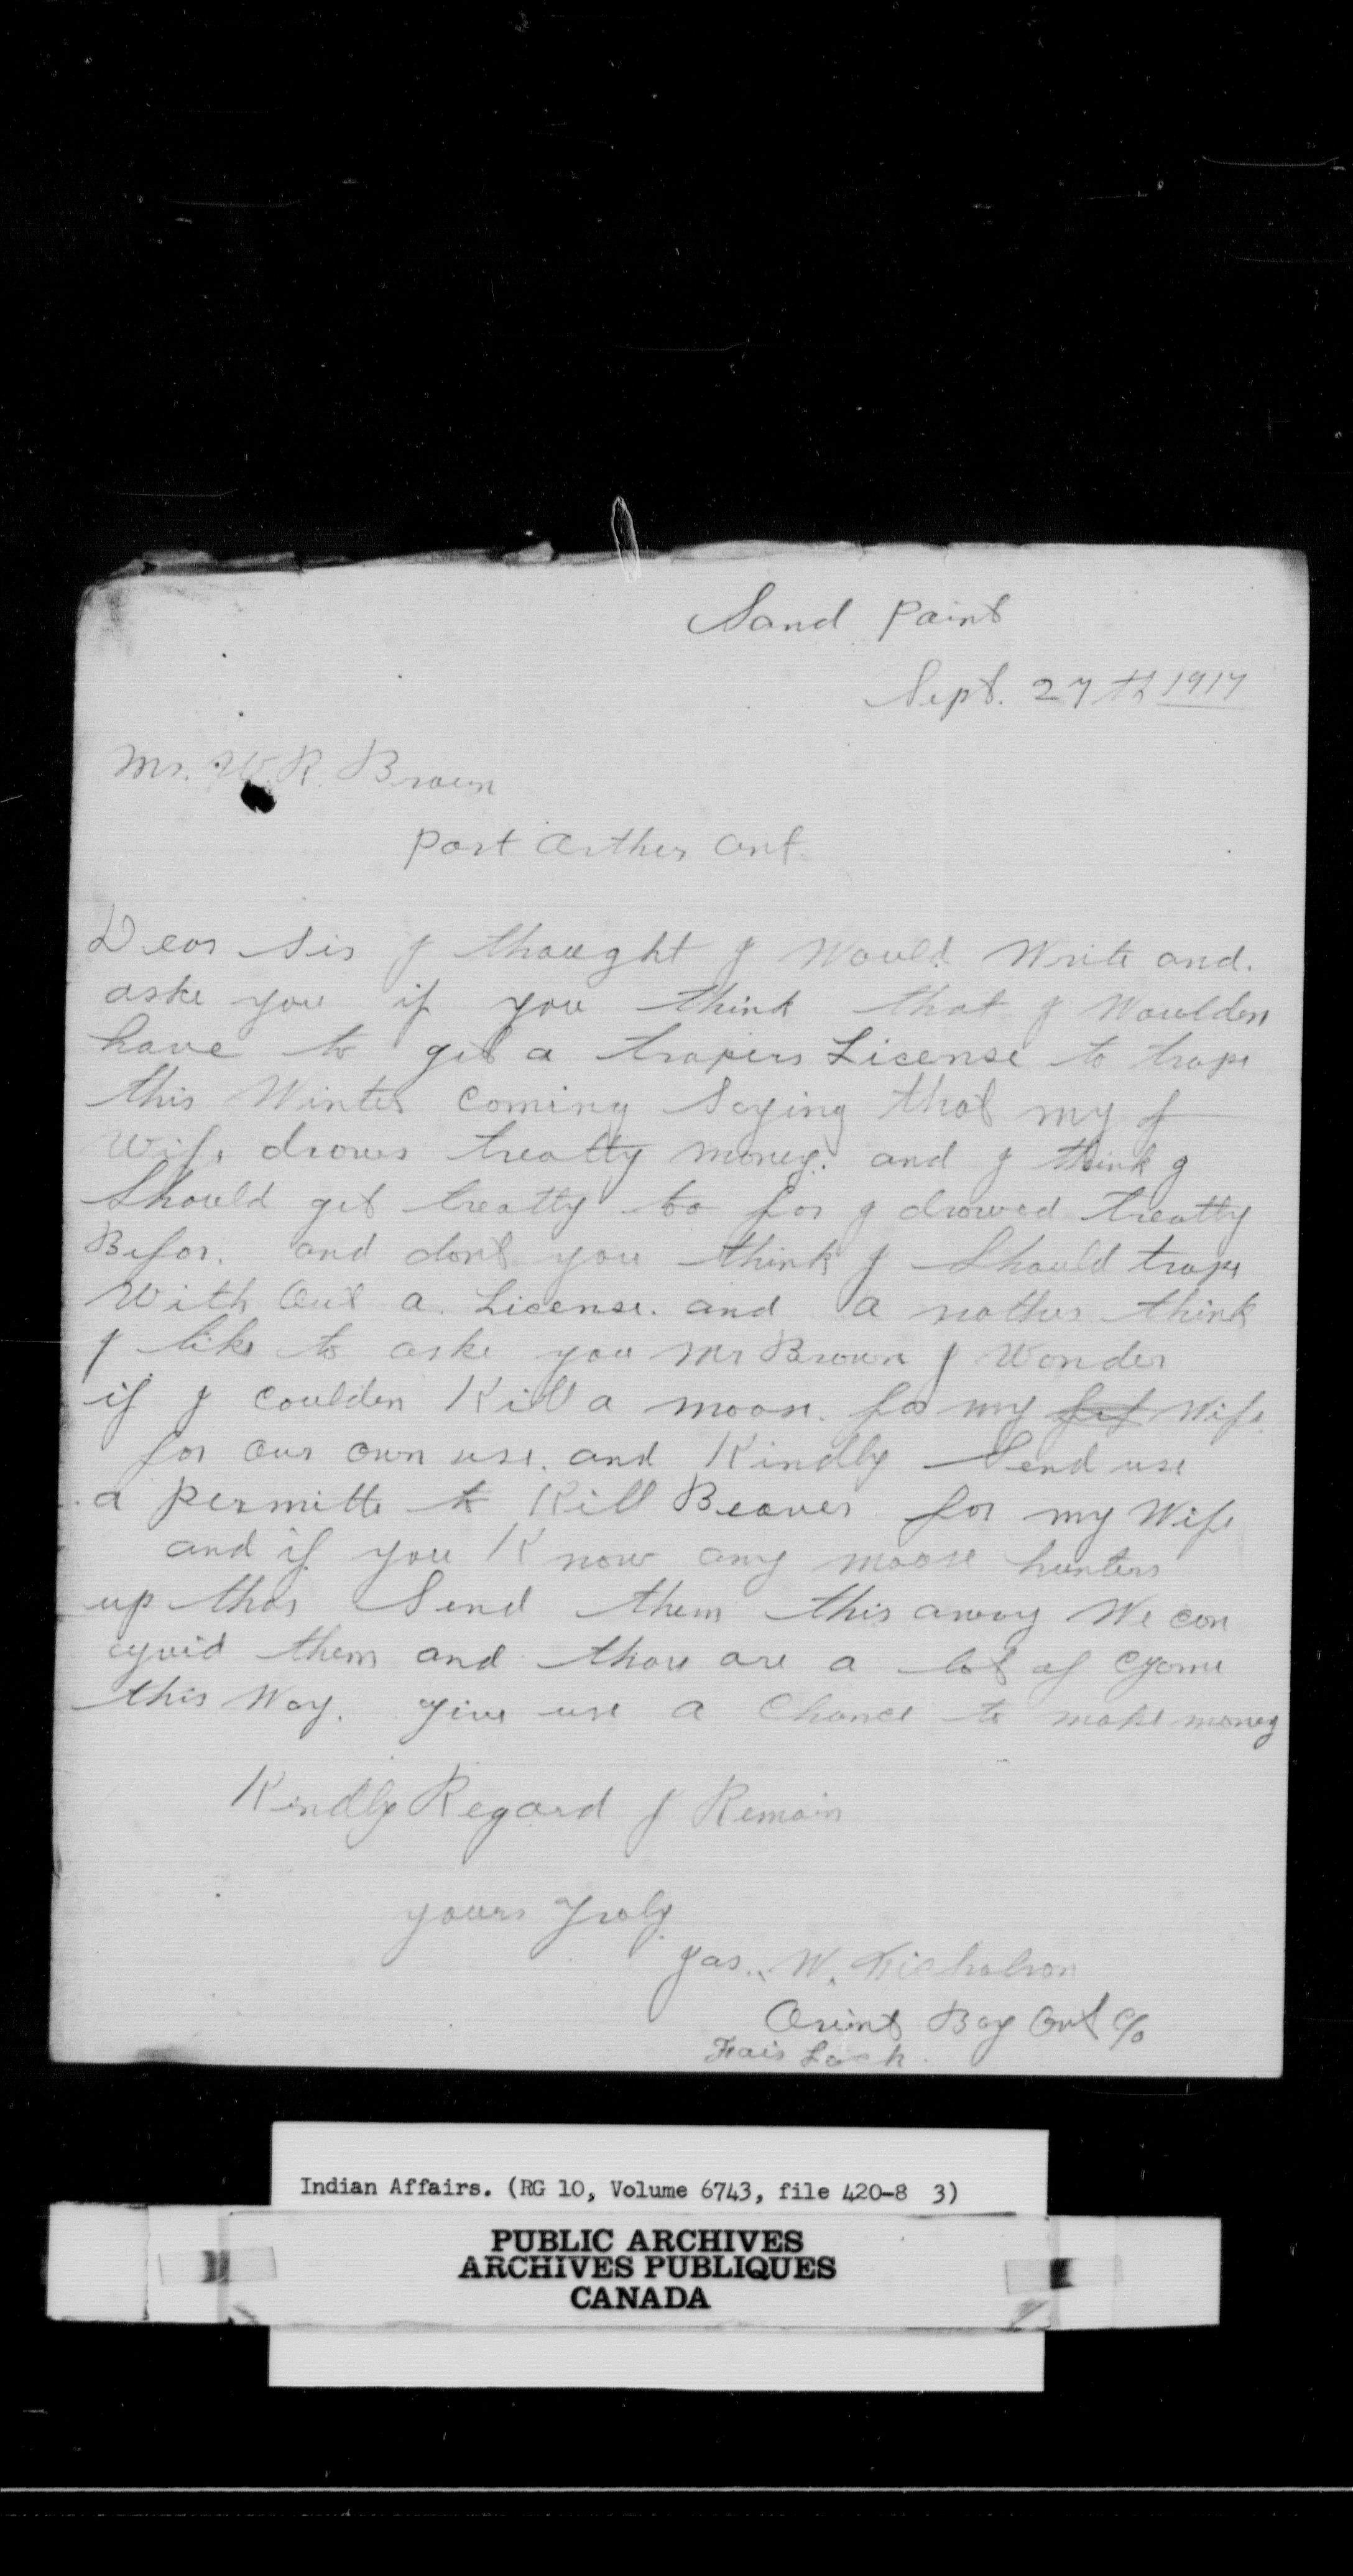 Sand Point
Sept. 27th 1917
Mr. W. R. Brown
Port Arther Ont.
Dear Sir I thought I Would Write and.
aske you if you think that I Woulden
have to get a trapers License to trape
this Winter Coming Saying that my f
Wife drows treatty money. and I think I
Should get treatty to for I drowed treatty
Befor. and dont you think I Should trape
With Out a. License. and a nother think
I like to aske you Mr Brown I Wonder
if I coulden Kill a moose. for my Wife.
for our own use. and Kindly Send use
a permitte to Kill Beaver for my Wife
and if you Know any moose hunters
up thar Send them this away We can
gyuid them and thare are a lot of Gyame
this Way. Give use a Chance to make money
Kindly Regard I Remain
yours Truly
Jas. W. Nicholson
Orient Bay Ont C/o
Indian Affairs. (RG 10, Volume 6743, file 420-8 3)
PUBLIC ARCHIVES
ARCHIVES PUBLIQUES
CANADA